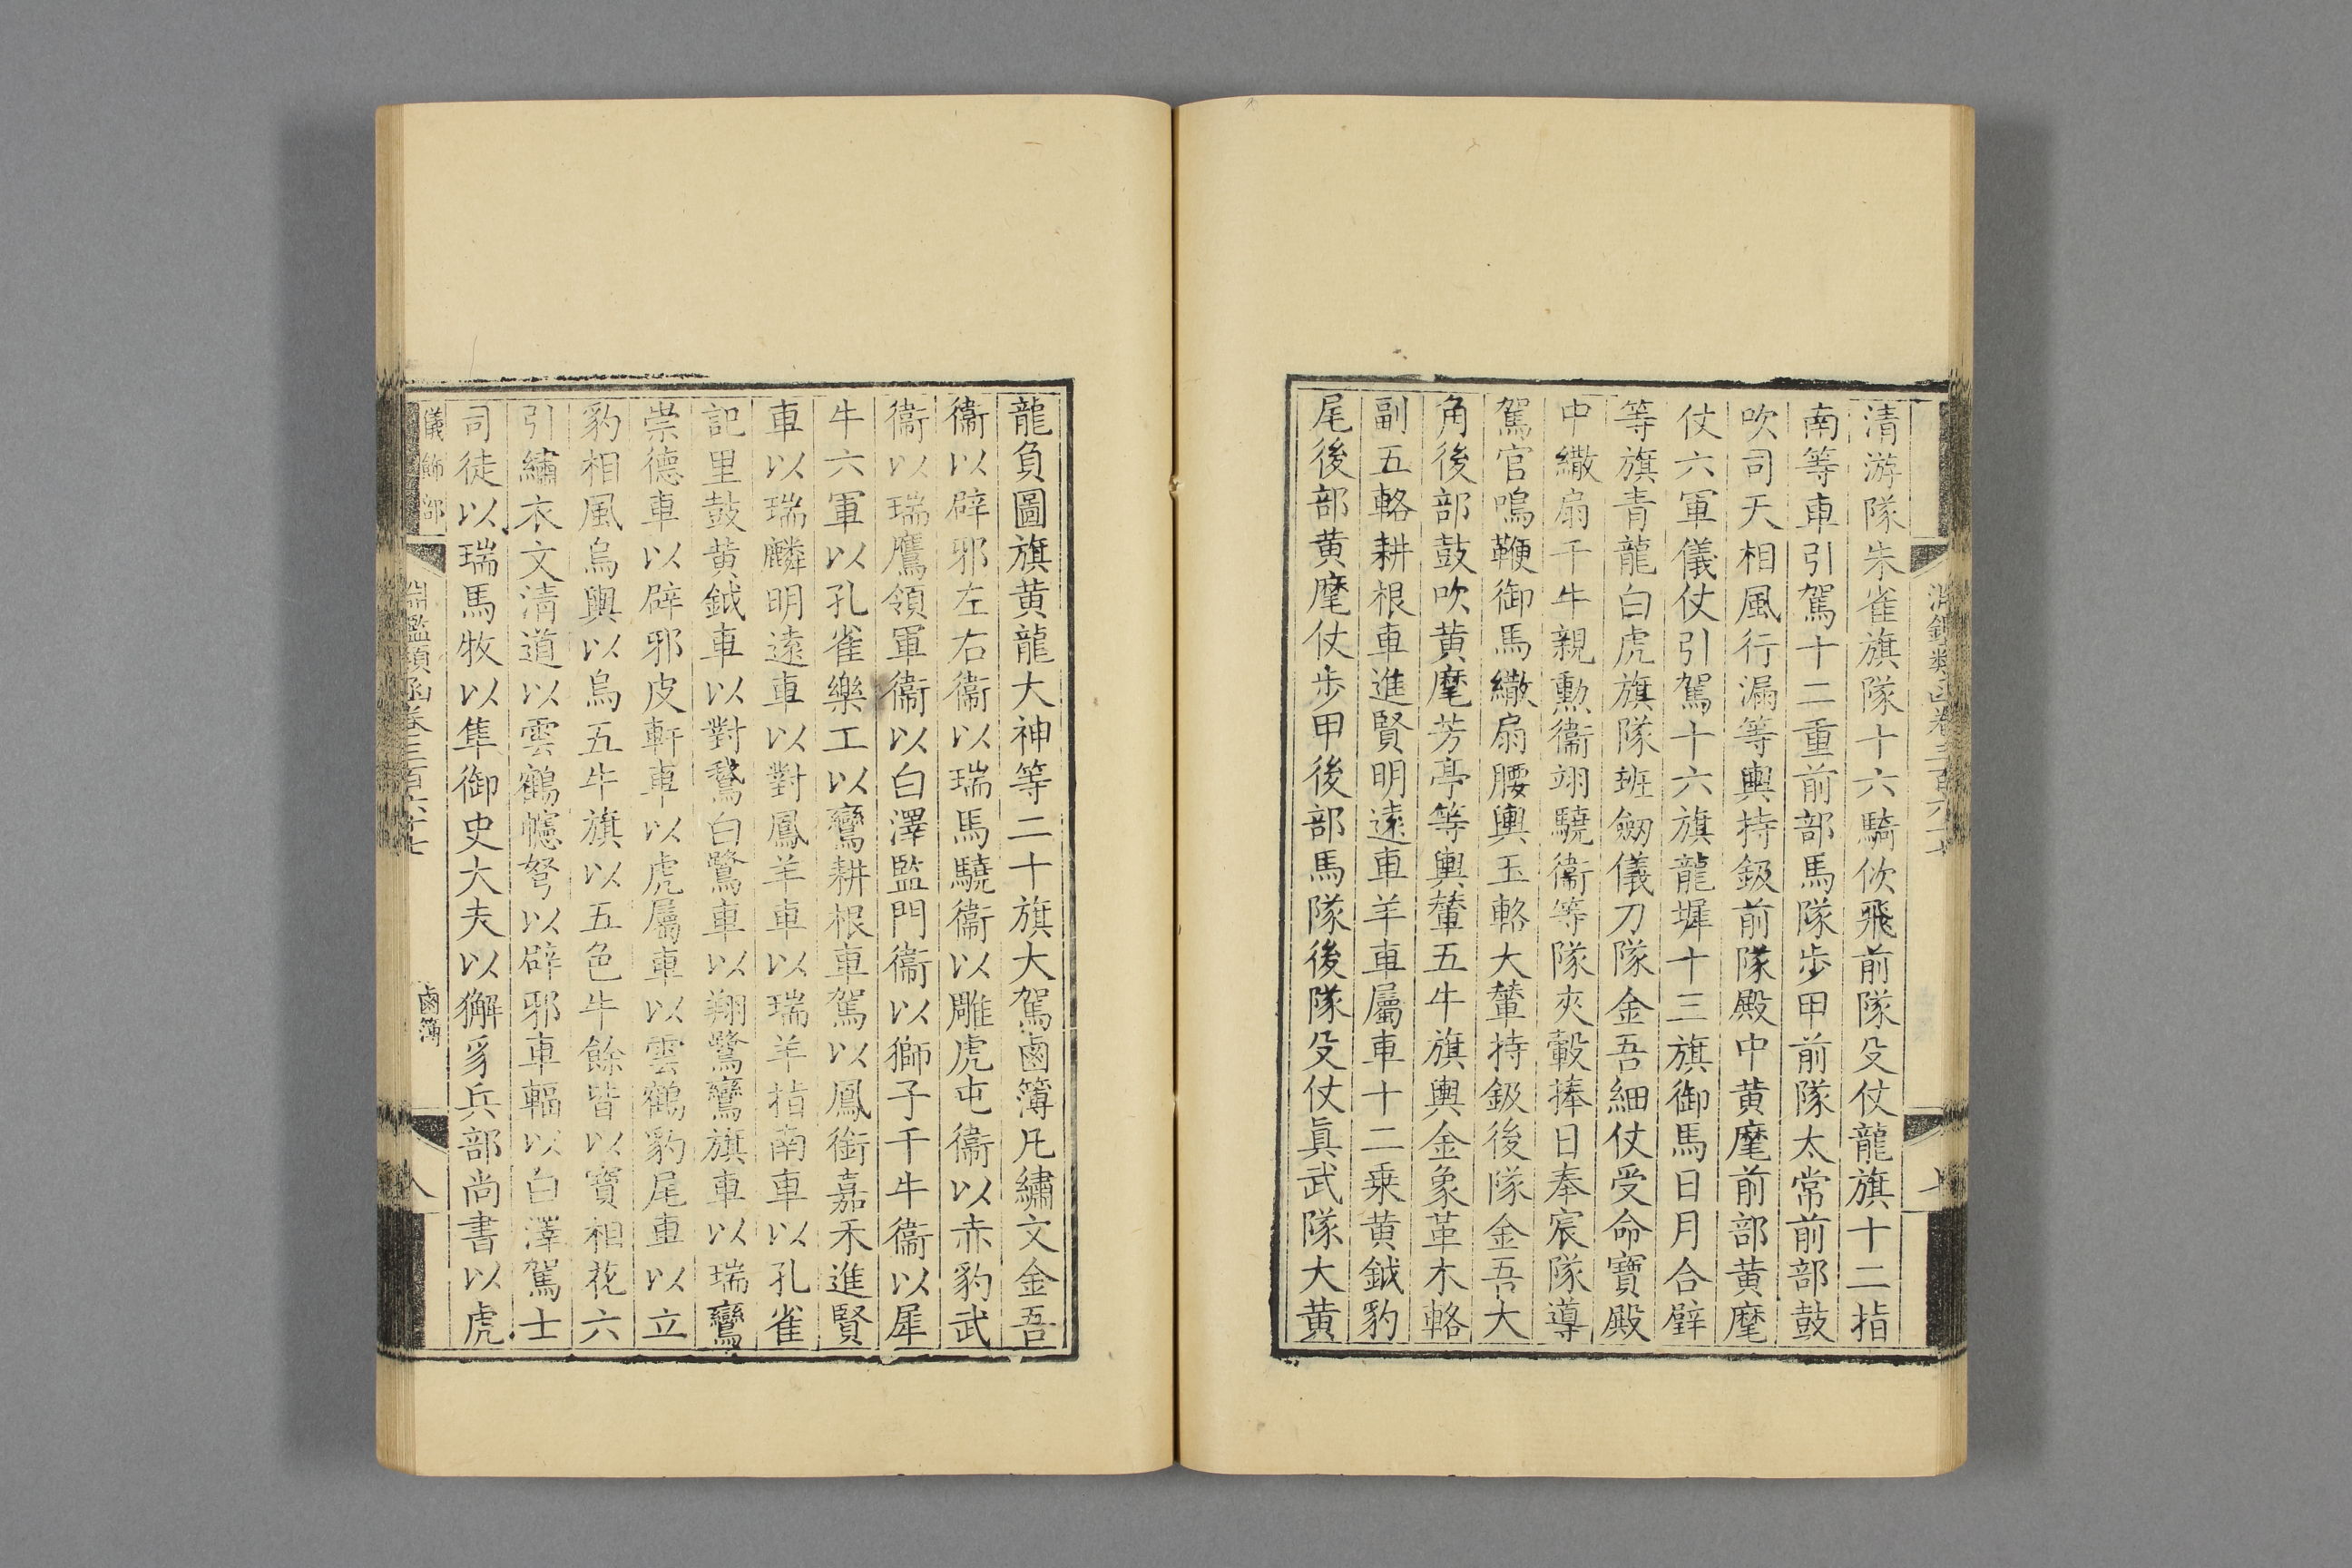 清游隊朱雀旗隊十六騎佽飛前隊殳仗龍旗十二指
南等車引駕十二重前部馬隊步甲前隊太常前部鼓
吹司天相風行漏等輿持鈒前隊殿中黄麾前部黄麾
仗六軍儀仗引駕十六旗龍墀十三旗御馬日月合璧
等旗青龍白虎旗隊班劒儀刀隊金吾細仗受命寶殿
中繖扇千牛親勲衞翊驍衞等隊夾轂捧日奉宸隊導
駕官鳴鞭御馬繖扇腰輿玉輅大輦持鈒後隊金吾大
角後部鼓吹黄麾芳亭等輿輦五牛旗輿金象革木輅
副五輅耕根車進賢明遠車羊車屬車十二乗黄鉞豹
尾後部黄麾仗步甲後部馬隊後隊殳仗眞武隊大黄
龍負圖旗黄龍大神等二十旗大駕鹵簿凡繡文金吾
衞以辟邪左右衞以瑞馬驍衞以雕虎屯衞以赤豹武
衞以瑞鷹領軍衞以白澤監門衞以獅子千牛衞以犀
牛六軍以孔雀樂工以鸞耕根車駕以鳳銜嘉禾進賢
車以瑞麟明遠車以對鳳羊車以瑞羊指南車以孔雀
記里鼓黄鉞車以對鵞白鷺車以翔鷺鸞旗車以瑞鸞
崇德車以辟邪皮軒車以虎屬車以雲鶴豹尾車以立
豹相風烏輿以烏五牛旗以五色牛餘皆以寶相花六
引繡衣文清道以雲鶴幰弩以辟邪車輻以白澤駕士
司徒以瑞馬牧以隼御史大夫以獬豸兵部尚書以虎
儀飾部
淵鑑類函卷三百六十七
鹵簿
八